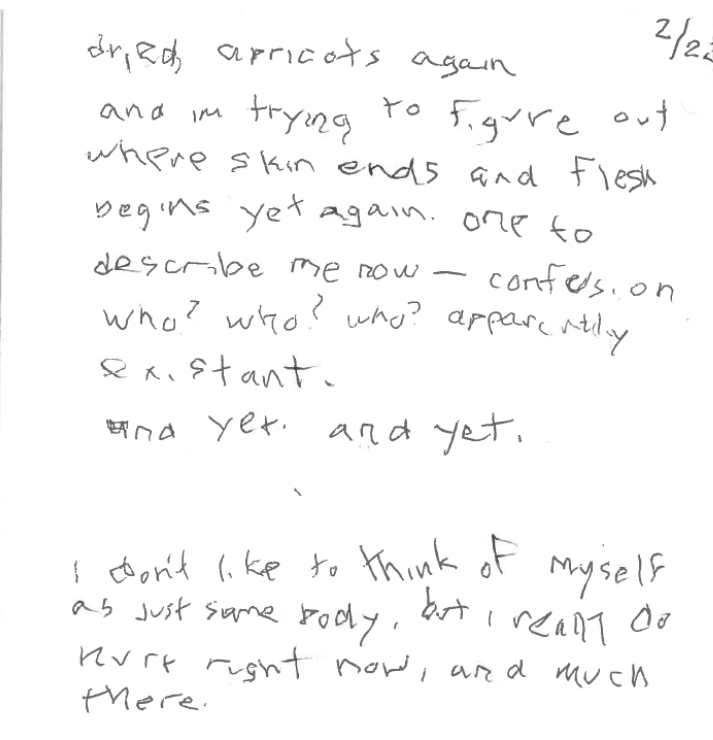 2/22
dried apricots again
and im trying to figure out
where skin ends and flesh
begins yet again. one to
describe me now — confusion
who? who? who? apparently
existant.
and yet. and yet.
i don't like to think of myself
as just some body, but i really do
hurt right now, and much
there.